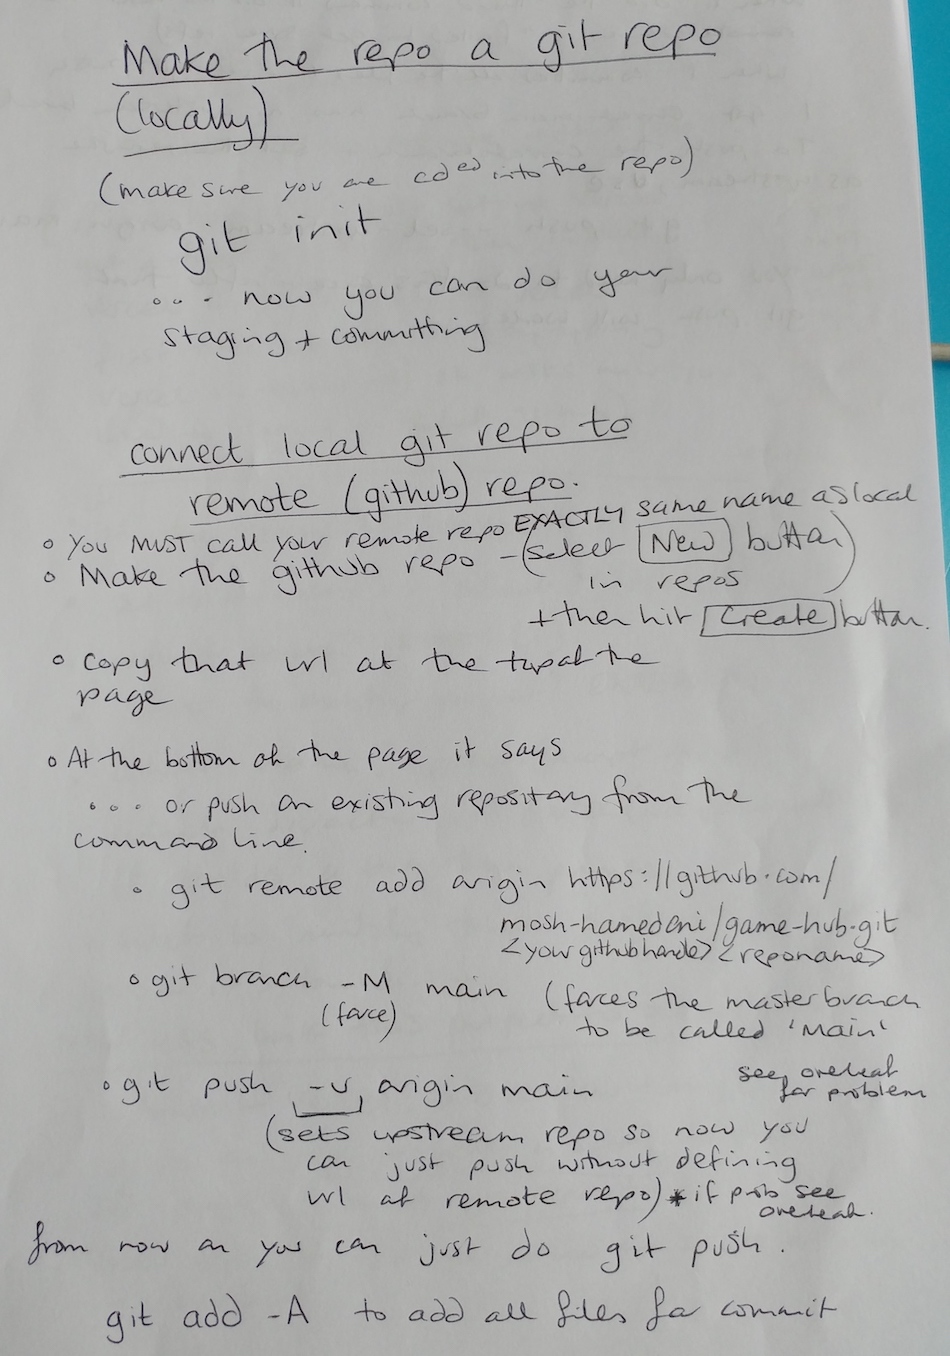 Make the repo a git repo
(locally)
(make sure you are cded into the repo)
git init
... now you can do your
staging + committing
connect local git repo to
remote (github) repo.
o You MUST call your remote repo EXACTLY same name as local
o Make the github repo - (select New button
in repos)
+ then hit Create button.
o copy that url at the top of the
page
o At the bottom of the page it says
... or push an existing repository from the
command line.
o git remote add origin https://github.com/
mosh-hamedani/game-hub-git
<your github handle> <reponame>
o git branch -M main (forces the master branch
(force) to be called 'main'
o git push -u origin main
see overleaf
for problem
(sets upstream repo so now you
can just push without defining
url of remote repo) * if prob see
overleaf.
from now on you can just do git push.
git add -A to add all files for commit